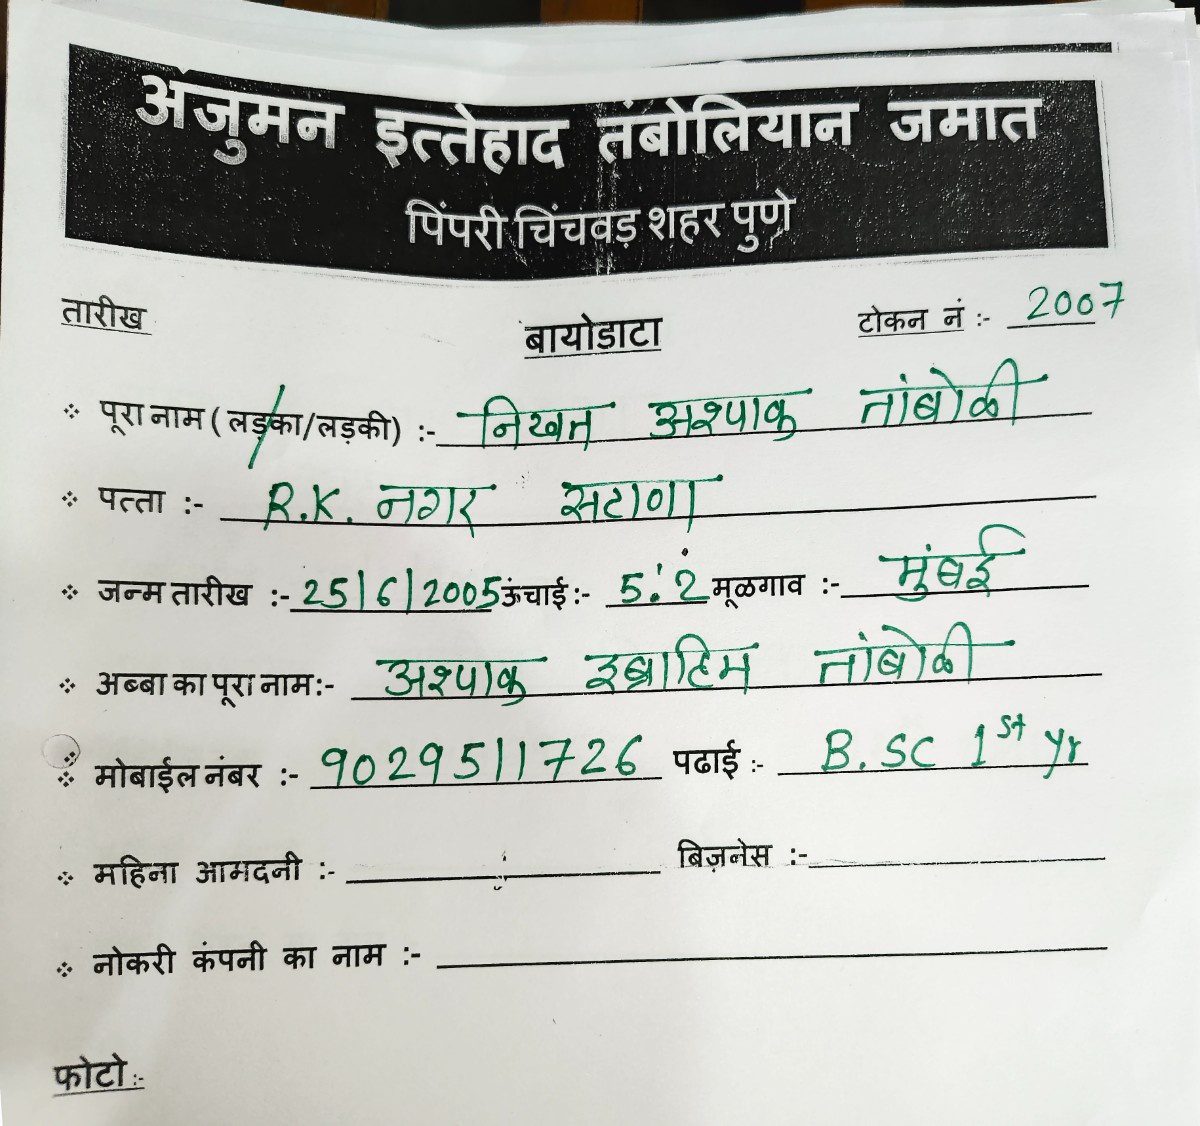 अंजुमन इत्तेहाद तंबोलियान जमात
पिंपरी चिंचवड़ शहर पुणे
तारीख
बायोडाटा
टोकन नं :- 2007
पूरा नाम ( लड़का/लड़की) :- निखत अश्पाक तांबोळी
पत्ता :- R.K. नगर सटाणा
जन्म तारीख :- 25/6/2005 ऊंचाई :- 5.'2 मूळगाव :- मुंबई
अब्बा का पूरा नाम:- अश्पाक इब्राहिम तांबोळी
मोबाईल नंबर :- 9029511726 पढाई :- B.SC 1st yr
महिना आमदनी :- बिज़नेस :-
नोकरी कंपनी का नाम :-
फोटो:-